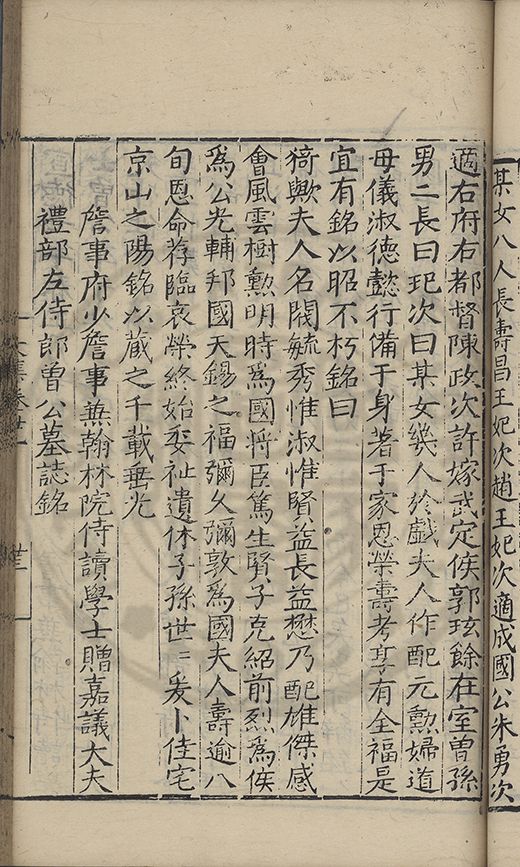 某女八人長壽昌王妃次趙王妃次適成國公朱勇次
適右府右都督陳政次許嫁武定侯郭玹餘在室曾孫
男二長曰玘次曰某女幾人於戲夫人作配元勳婦道
母儀淑德懿行備于身著于家恩榮壽考享有全福是
宜有銘以昭不朽銘曰
猗歟夫人名閥毓秀惟淑惟賢益長益懋乃配雄傑感
會風雲樹勲明時為國將臣篤生賢子克紹前烈為侯
為公光輔邦國天錫之福彌久彌敦為國夫人壽逾八
旬恩命荐臨哀榮終始委祉遺休子孫世〻爰卜佳宅
京山之陽銘以蔵之千載垂光
詹事府少詹事兼翰林院侍讀學士贈嘉議大夫
禮部左侍郎曾公墓誌銘
文集卷廿一
廿三